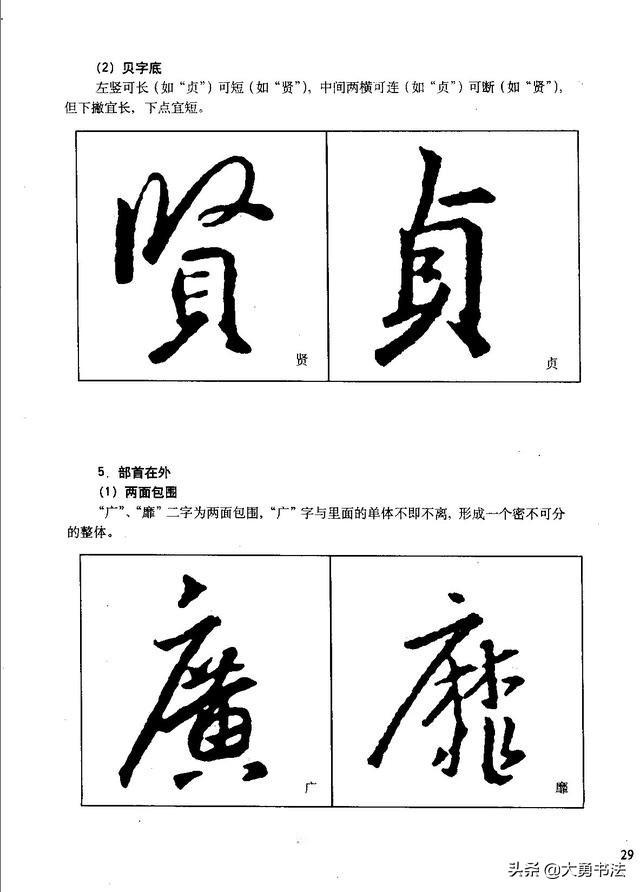 （2）贝字底
左竖可长（如“贞”）可短（如“贤”），中间两横可连（如“贞”）可断（如“贤”），
但下撇宜长，下点宜短。
賢 貞
贤 贞
5．部首在外
（1）两面包围
“广”、“靡”二字为两面包围，“广”字与里面的单体不即不离，形成一个密不可分
的整体。
廣 靡
广 靡
29
头条 @大勇书法